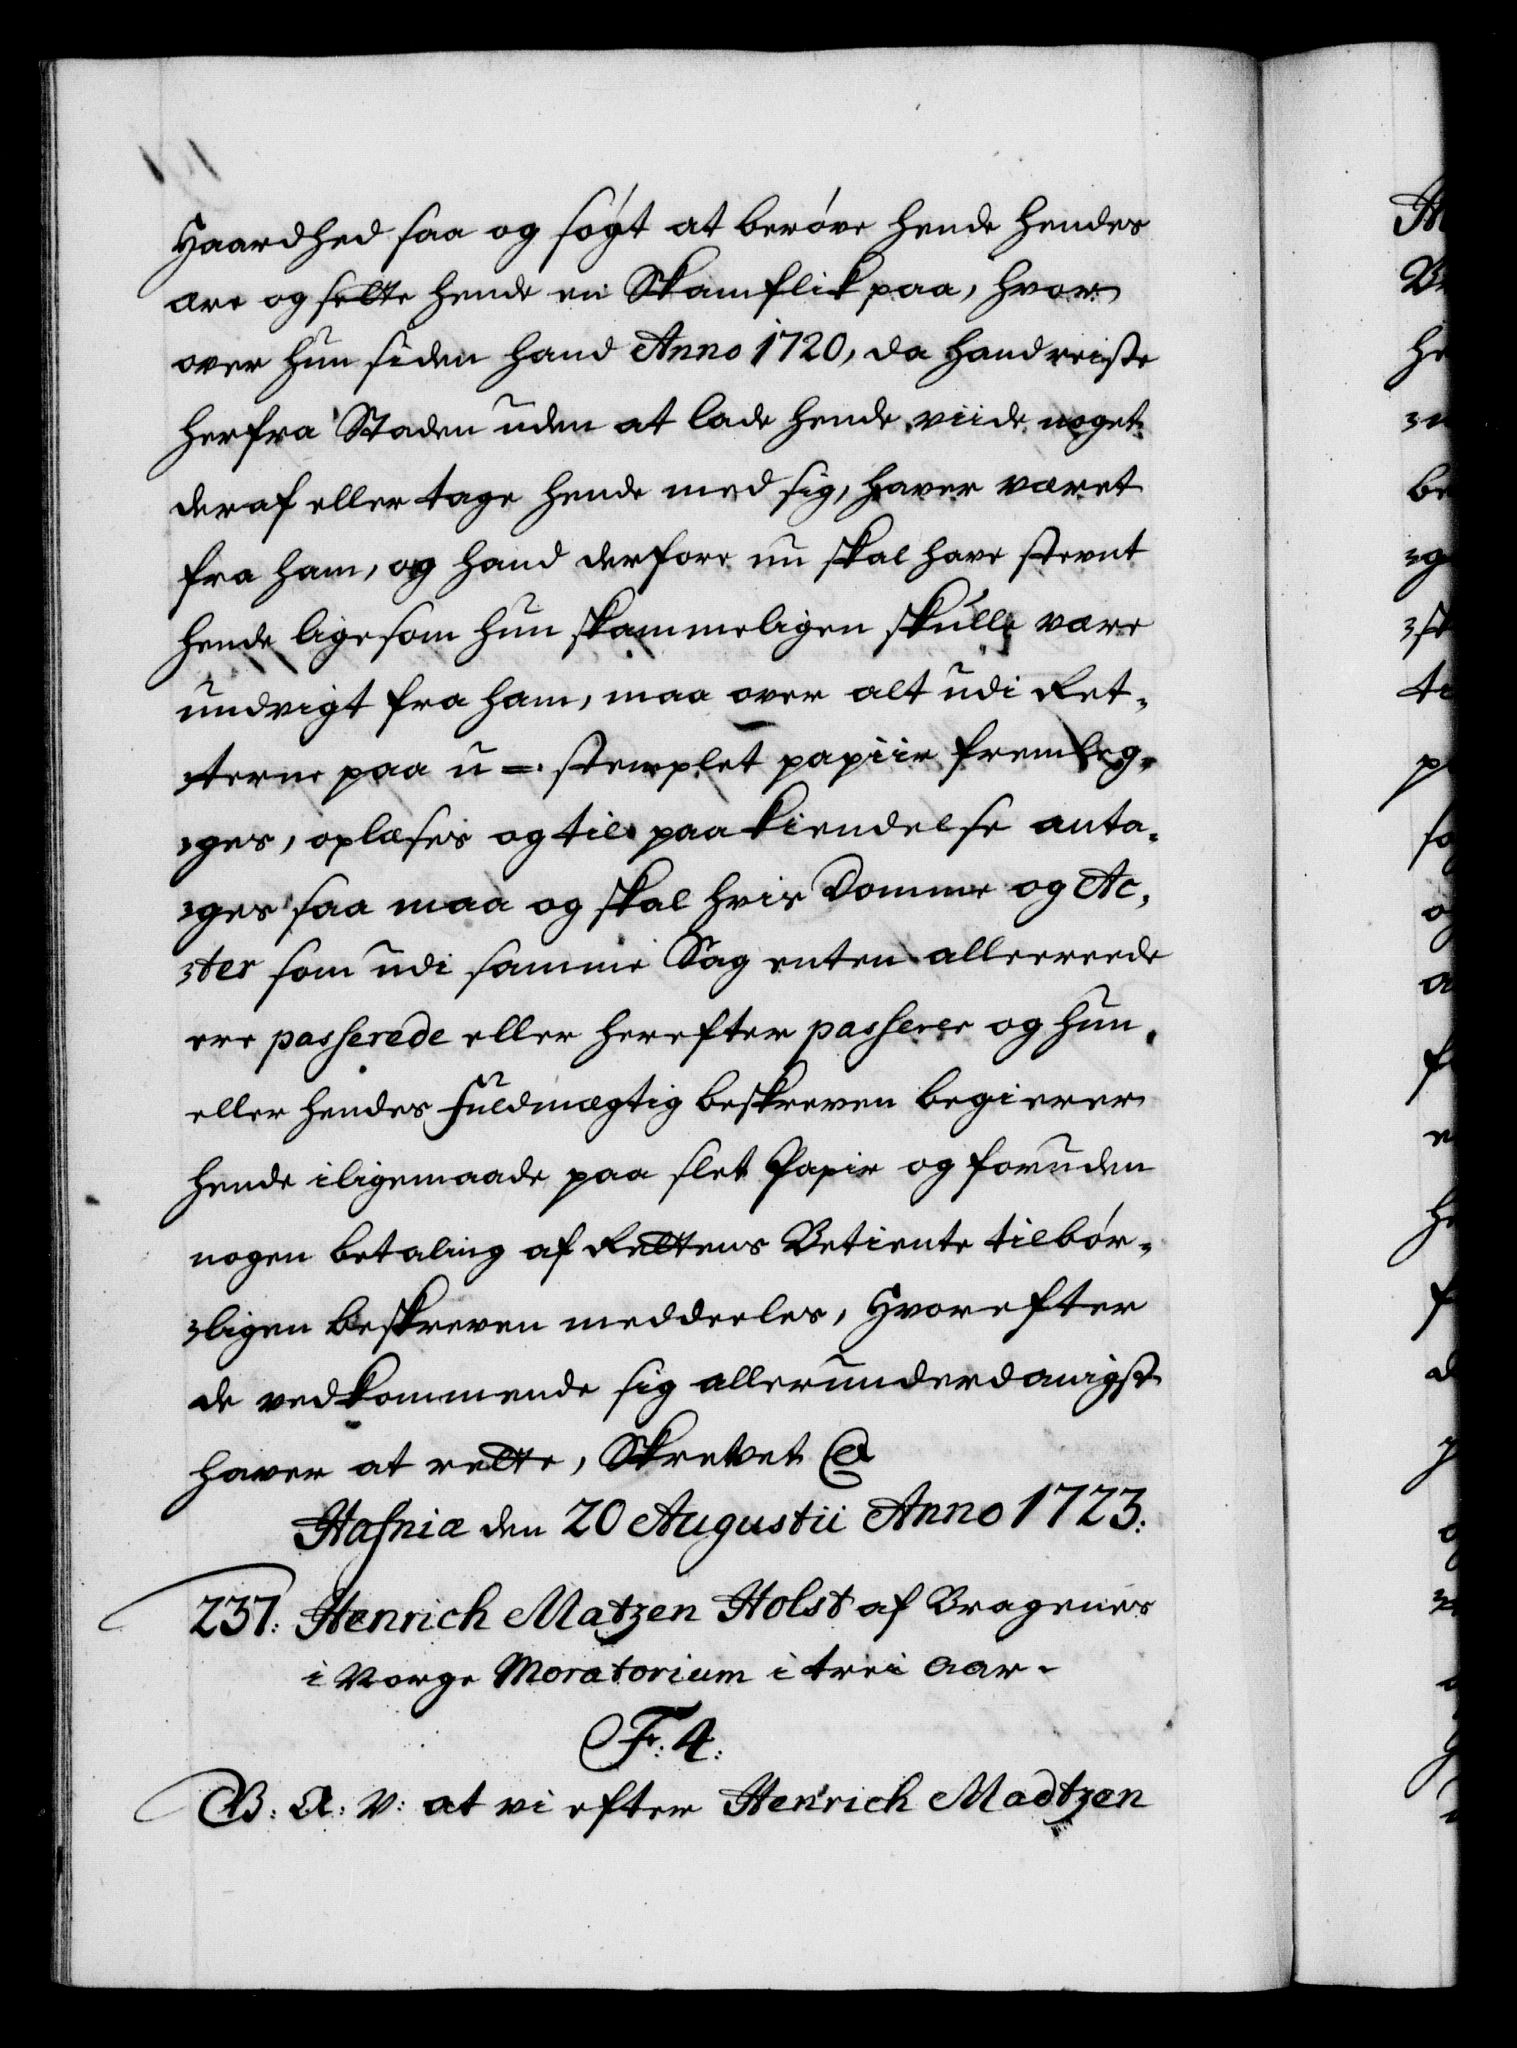 Haardhed saa og søgt at berøve hende hendes
ære og sette hende en Skamflik paa, hvor
over hun siden hand Anno 1720, da hand reiste
herfra Staden uden at lade hende viide noget
deraf eller tage hende med sig, haver været
fra ham, og hand derfore nu skal have stevnt
hende ligesom hun skammeligen skulle være
undvigt fra ham, maa over alt udi Ret-
terne paa u-stemplet papiir fremleg-
ges, oplæses og til paakiendelse anta-
ges saa maa og skal hvis Domme og Ac-
ter som udi samme Sag enten allereede
ere passerede eller herefter passerer og hun
eller hendes Fuldmægtig beskreven begierer
hende iligemaade paa slet Papir og foruden
nogen betaling af Rettens Betiente tilbør-
ligen beskreven meddeeles, Hvorefter
de vedkommende sig allerunderdanigst
haver at rette, Skrevet @
Hafniæ den 20 Augustii Anno 1723:
237: Henrich Matzen Holst af Bragenes
i Norge Moratorium i trei Aar.
Fr. 4.
B: A: V: at vi efter Henrich Madtzen